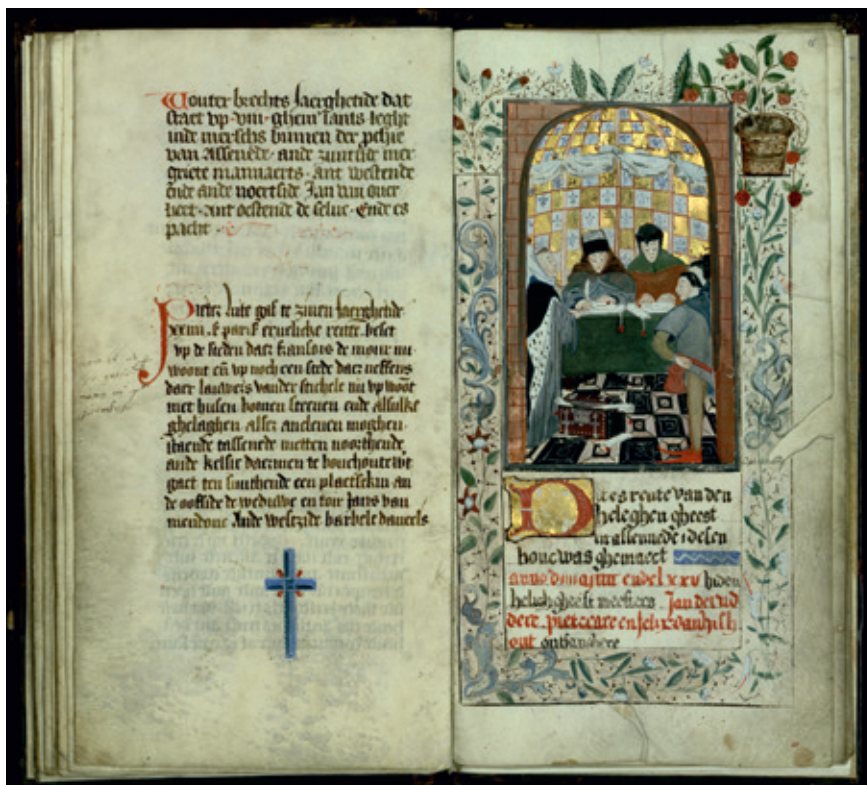 Wouter brechts Jaerghetide dat
staet vp viii ghem lants leght
inde mersch binnen der pchie
van Assenede ande zuutside mer
griete mannaerts ant westende
ende ande noertside Jan van ouer
ant oestende de selue Ende es
pacht
Pieter gaf te zinen Jaerghetide
xxiiii paris eruelicke rente beset
vp de steden daer fransois de mour nu
woont en vp noch een stede daer neffens
daer lauwers vander stichele nu vp woont
met husen bomen steenen ende alsulke
ghelaghen alser ancleuen moghen
staende tassenede metten noorthende
ande kelsie daermen te bouchoute wt
gaet ten suuthende een plaetsekin an
de oostside de weduwe en toir Jans van
mendonc Ande westzide barbele daneels
Dit es rente van den
heleghen gheest
in assenede desen
bouc was ghemaect
anno dni xiiiic ende lxxv biden
helich gheest meesters Jan de rid
dere pieter care en
out ontfanghere